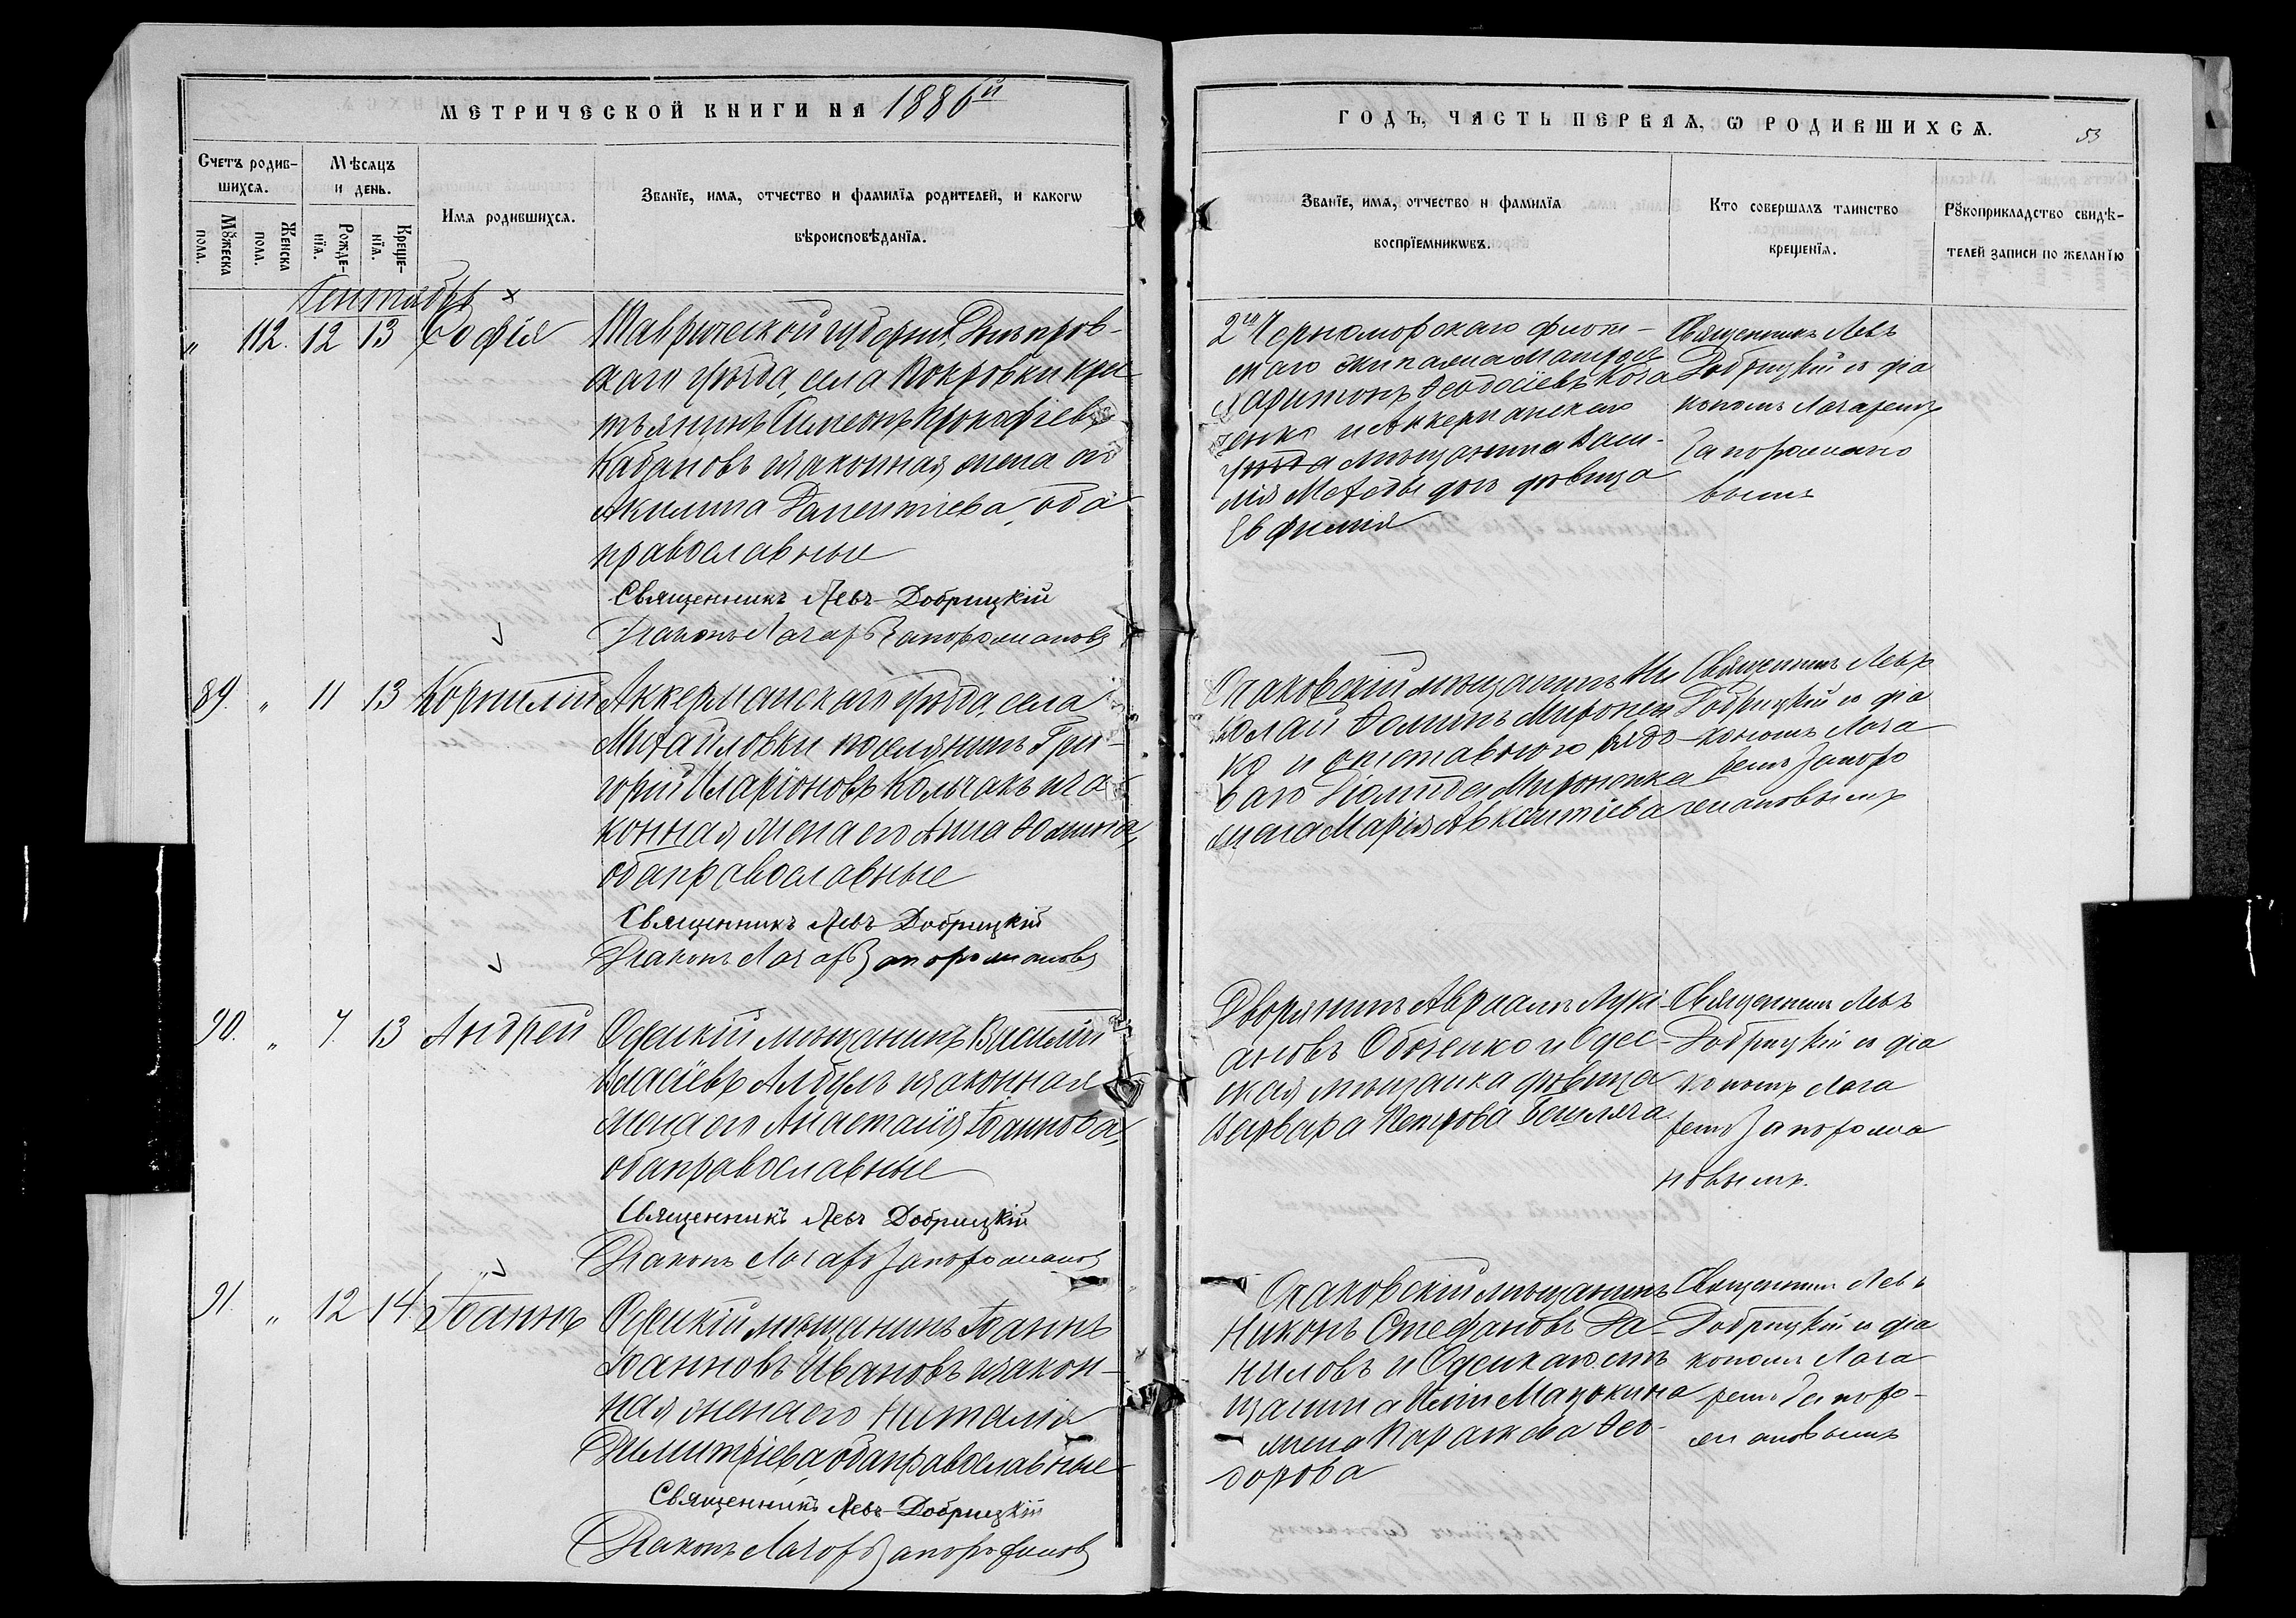 МЕТРИЧЕСКОЙ КНИГИ НА 1886й
ГОДЪ, ЧАСТЬ ПЕРВАЯ, Ѡ РОДИВШИХСѦ.
53
Счетъ родив-
шихсѧ.
Мѣсяцъ
и день.
Имѧ родившихсѧ.
Званїе, имѧ, отчество и фамилїѧ родителей, и какогѡ
вѣроисповѣданїѧ.
Мꙋжеска
пола.
Женска
пола.
Рожде-
нїѧ.
Креще-
нїѧ.
Званїе, имѧ, отчество и фамилїѧ
воспрїемникѡвъ.
Кто совершалъ таинство
крещенїѧ.
Рꙋкоприкладство свидѣ-
телей записи по желанїю
Сентябрь ×
" 112. 12 13 Софія
Таврической губерніи Днѣпров-
скаго уѣзда, села Покровки кре
тьянинъ Симеонъ Прокофіевъ
Кабановъ и законная жена его
Акилина Терентіева, оба
православные
Священникъ Левъ Добрицкій
Діаконъ Лазарь Запоромановъ
2го Черноморскаго флот-
скаго экипажа матрозъ
Харитонъ Ѳеодосіевъ Коза
ченко и Аккерманскаго
уѣзда мѣщанина Васи-
лія дочь дѣвица
Евфимія
Священникъ Левъ
Добрицкій съ діа
кономъ Лазаремъ
Запоромано
вымъ
89. " 11 13 Корнилій
Аккерманскаго уѣзда, села
Михайловки поселянинъ Гри-
горій Иларіоновъ Колчакъ и за
конная жена его Анна Ѳомина,
оба православные
Священникъ Левъ Добрицкій
Діаконъ Лазарь Запоромановъ
Очаковскій мѣщанинъ Ни
колай Ѳоминъ Миронен
ко и отставного рядо-
ваго Діомида Мироненка
жена Марія Авксентіева
Священникъ Левъ
Добрицкій съ діа
кономъ Лаза
ремъ Запоро
мановымъ
90. " 7. 13 Андрей
Одесскій мѣщанинъ Василій
Власіевъ Албулъ и законная
жена его Анастасія Іоаннова,
оба православные
Священникъ Левъ Добрицкій
Діаконъ Лазарь Запороманов
Дворянинъ Авраамъ Луки-
ановъ Обоченко и Одес-
ская мѣщанка дѣвица
Варвара Петрова
Священникъ Левъ
Добрицкій съ діа
кономъ Лаза
ремъ Запорома
новымъ.
91. " 12 14. Іоаннъ
Одесскій мѣщанинъ Іоаннъ
Іоанновъ Ивановъ и закон-
ная жена его Наталія
Димитріева, оба православные
Священникъ Левъ Добрицкій
Діаконъ Лазарь Запороманов
Очаковскій мѣщанинъ
Никонъ Стефановъ Да-
ниловъ и Одесскаго мѣ
щанина Иліи Мазокина
жена Параскева Ѳео-
дорова
Священникъ Левъ
Добрицкій съ діа
кономъ Лаза
ремъ Запоро-
мановымъ